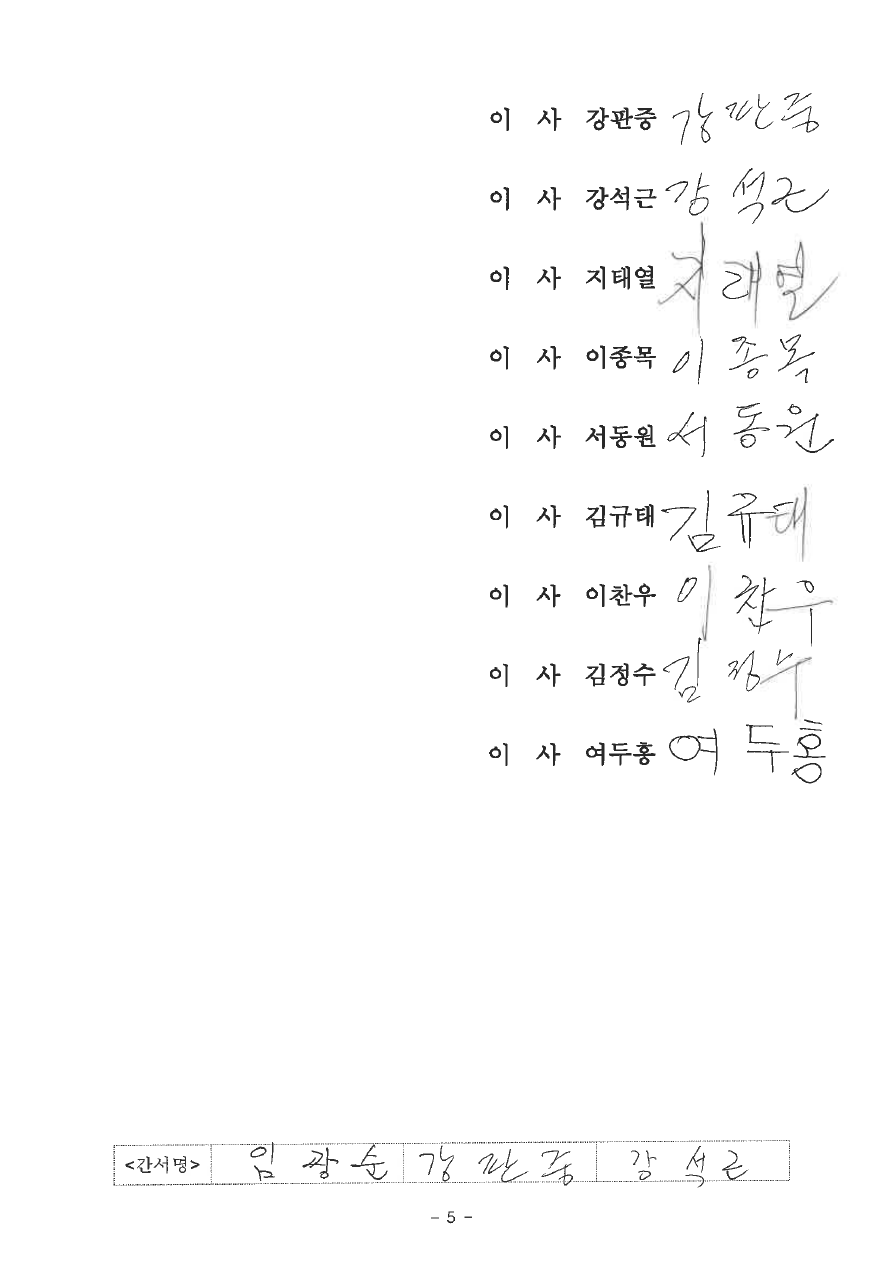 이 사 강판중 강판중
이 사 강석근 강석근
이 사 지태열 지태열
이 사 이종목 이종목
이 사 서동원 서동원
이 사 김규태 김규태
이 사 이찬우 이찬우
이 사 김정수 김정수
이 사 여두홍 여두홍
<간서명> 임광순 강판중 강석근
- 5 -